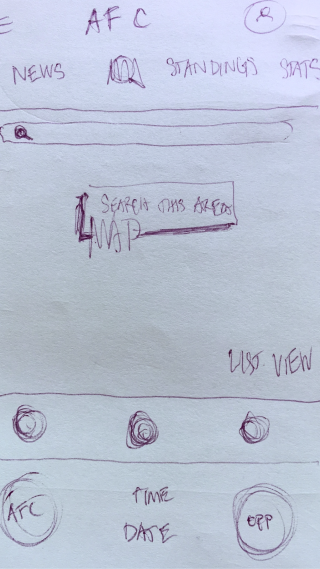 AFC
NEWS STANDINGS STATS
SEARCH THIS AREA
MAP
LIST VIEW
AFC TIME OPP
DATE